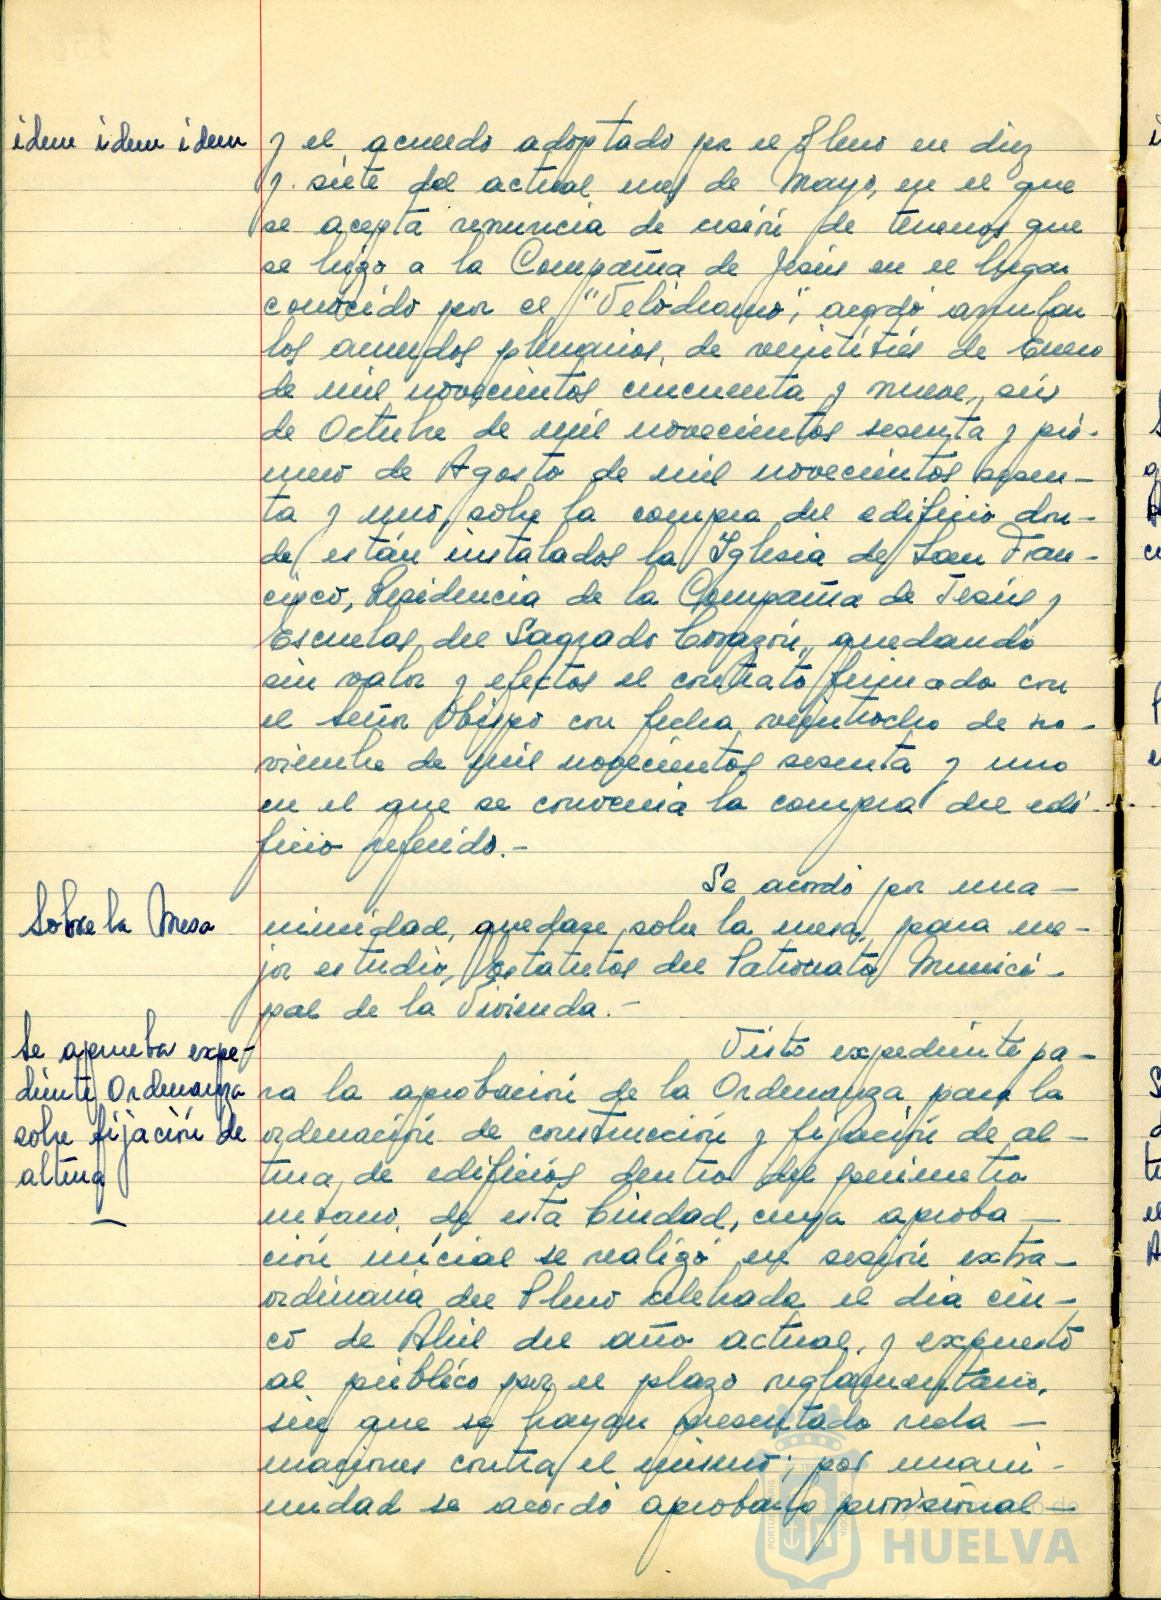 idem idem idem
y el acuerdo adoptado por el Pleno en diez
y siete del actual mes de Mayo, en el que
se acepta renuncia de cesión de terrenos que
se hizo a la Compañia de Jesús en el lugar
conocido por el "Velódromo", acordó anular
los acuerdos plenarios, de veintitrés de Enero
de mil novecientos cincuenta y nueve, seis
de Octubre de mil novecientos sesenta y pri-
mero de Agosto de mil novecientos sesen-
ta y uno, sobre la compra del edificio don-
de están instalados la Iglesia de San Fran-
cisco, Residencia de la Compañia de Jesús y
Escuelas del Sagrado Corazón, quedando
sin valor y efectos el contrato firmado con
el señor Obispo con fecha veintiocho de no-
viembre de mil novecientos sesenta y uno
en el que se convenia la compra del edi-
ficio referido.-
Se acordó por una-
Sobre la Mesa
nimidad, quedase sobre la mesa, para me-
jor estudio, Estatutos del Patronato Munici-
pal de la Vivienda.-
Se aprueba expe-
diente Ordenanza
sobre fijación de
altura
Visto expediente pa-
ra la aprobación de la Ordenanza para la
ordenación de construcción y fijación de al-
tura, de edificios dentro del perimetro
urbano, de esta Ciudad, cuya aproba-
ción inicial se realizó en sesión extra-
ordinaria del Pleno celebrada el dia cin-
co de Abril del año actual, y expuesto
al público por el plazo reglamentario,
sin que se hayan presentado recla-
maciones contra el mismo; por unani-
midad se acordó aprobarlo provisional-
HUELVA